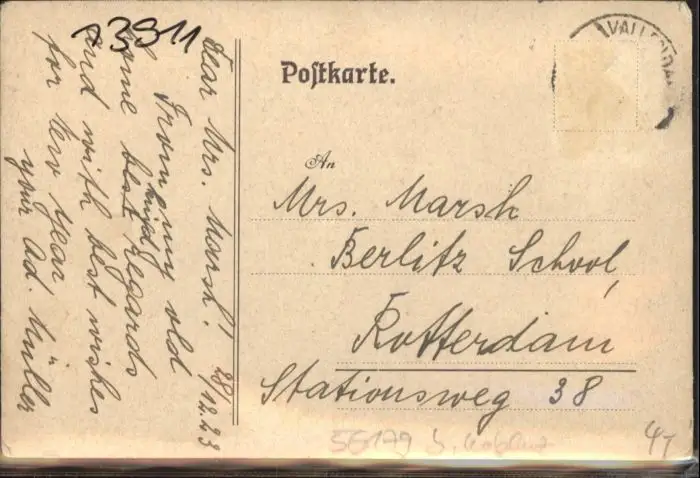 13911
Postkarte.
VALLENDA
An
Mrs. Marsh
Berlitz School,
Rotterdam
Stationsweg 38
28/12.23
Dear Mrs. Marsh!
From my old
home best kind regards
and with best wishes
for New Year
your Ad. Müller
56179